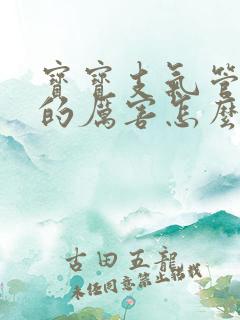 寶寶支氣管
的厲害怎麼
古田五龍
未经同意禁止转载